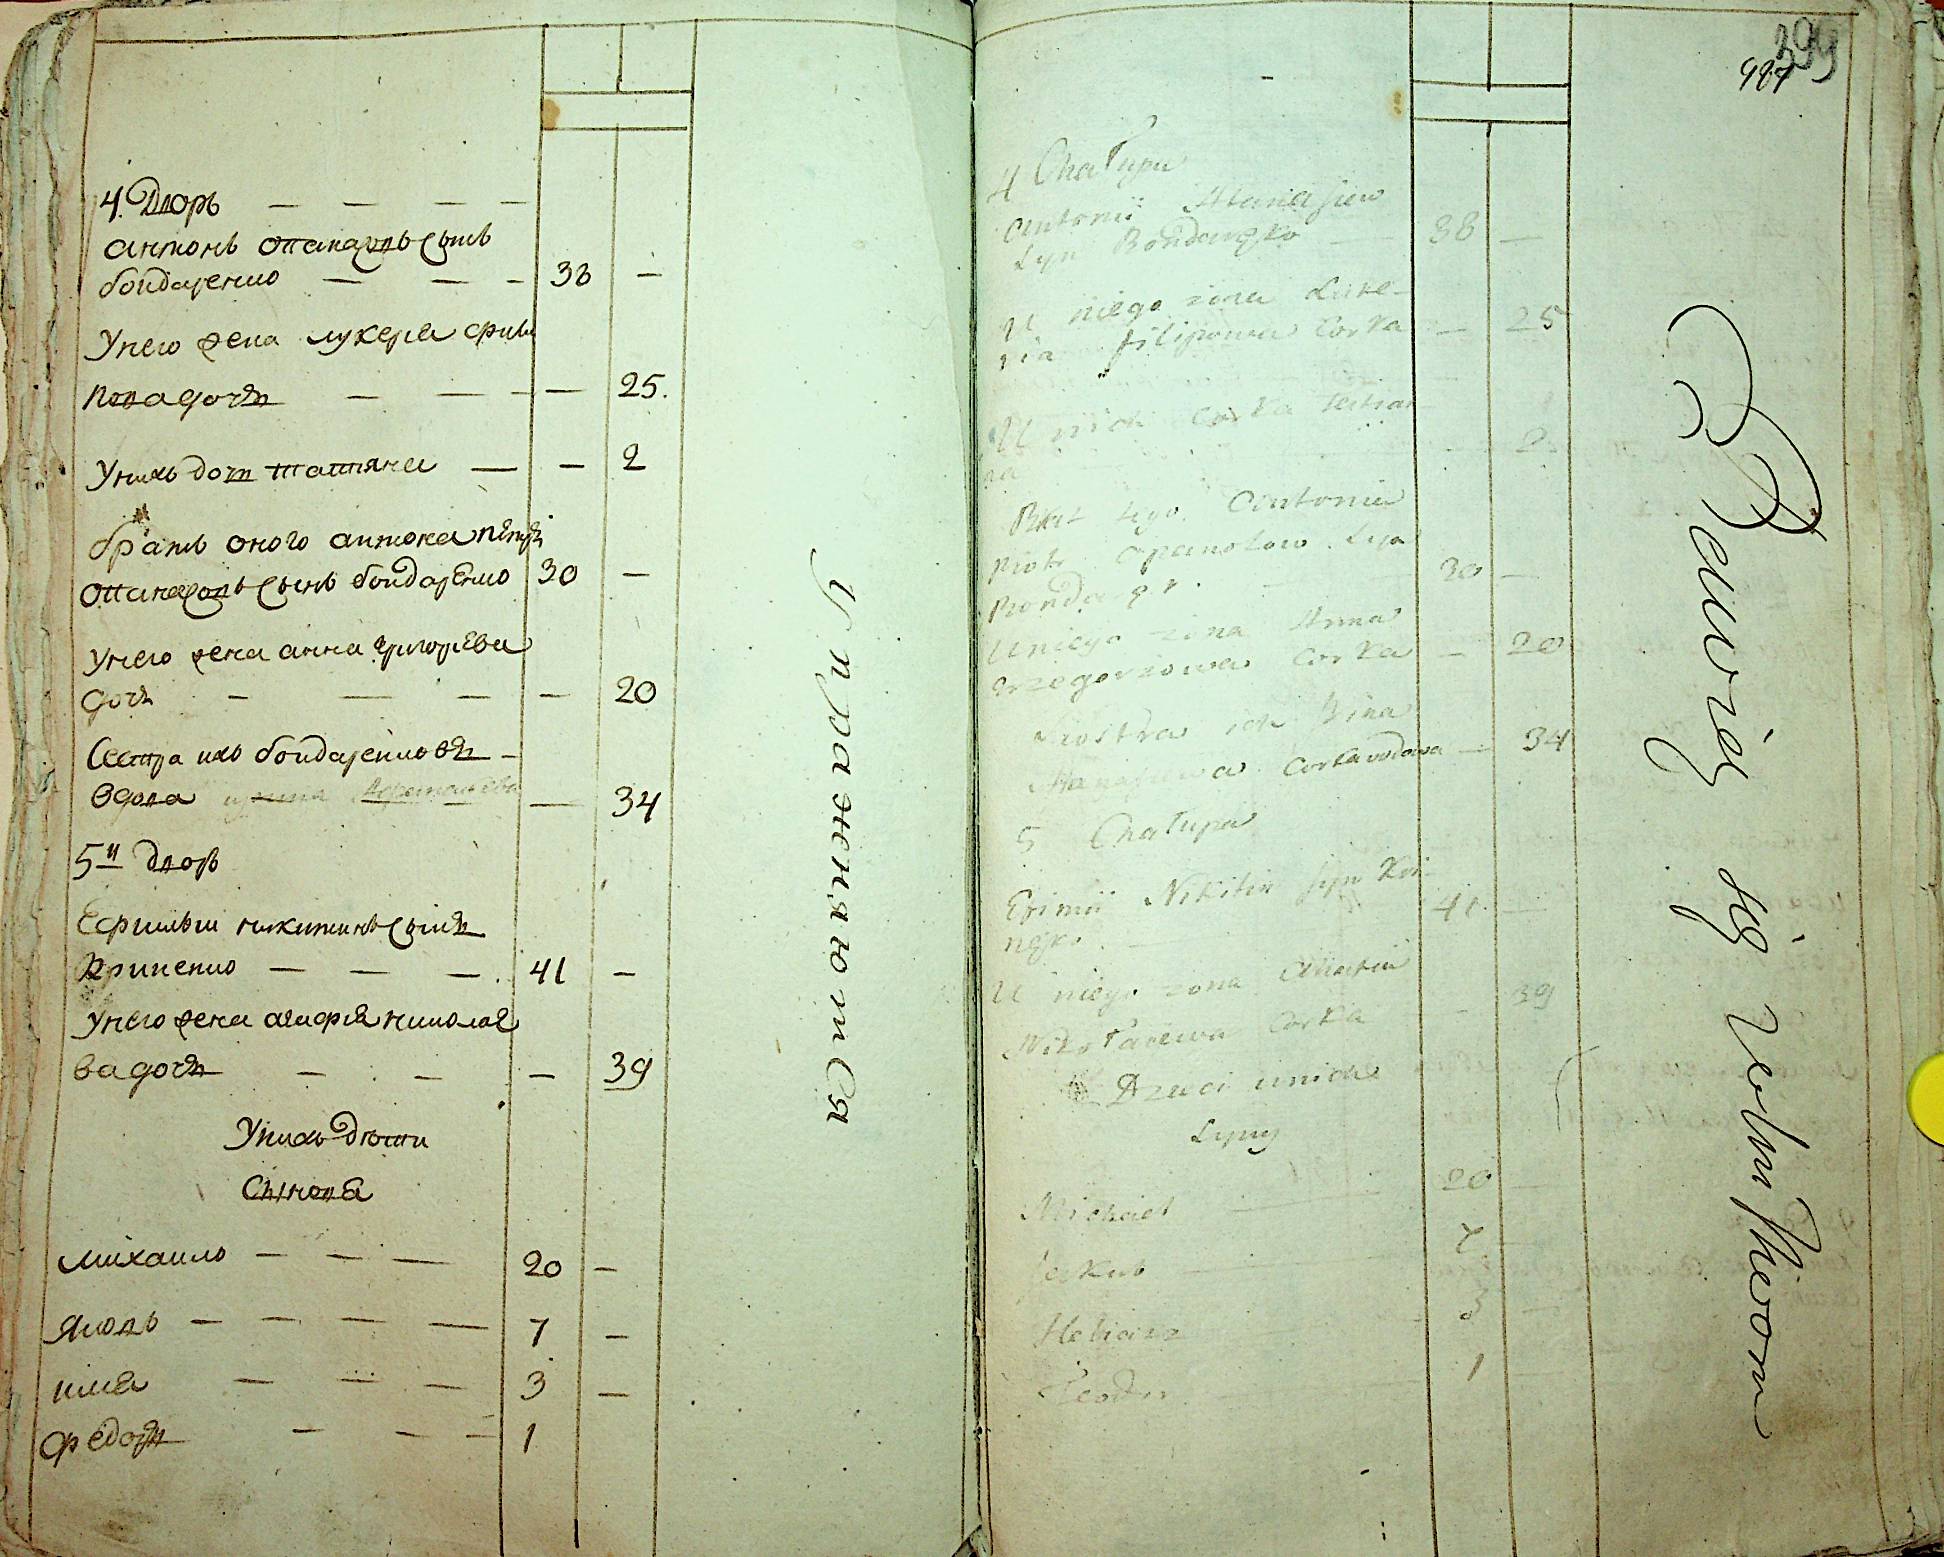 4. Дворъ
антонъ опанасовъ сынъ
бондаренко 38
У него жена лукеря фили
пова дочь 25.
У нихъ дочь татяна 2
братъ оного антона петръ
опанасовъ сынъ бондаренко 30
У него жена анна григорева
дочь 20
Сестра ихъ бондаренковъ
вдова 34
5й дворъ
Ефимъ никитинъ сынъ
Криненко 41
У него жена агафія николае
ва дочь 39
У нихъ дѣти
Сынова
михаило 20
яковъ 7
илія 3
федоръ 1
упражняютСя
399
4 Chałupa
Antonii Atanasiew
syn Bondarezko 38
U niego żona Luke-
ria filipowa Corka 25
U nich Corka Tatian
na 2
Brat tego Antonia
Piotr opanasow Syn
Bonda 30
U niego zona Anna
Grzegorzowa Corka 20
Siostra ich
Atanasiewa Corka wdowa 34
5 Chałupa
Efimii Nikitin syn Kri-
nęko 41
U niego zona
Nikołaiewa Corka 39
Dzieci u nich
Syny
Michael 20
Jakub 7
3
Teodor 1
Bawią się rolnictwem